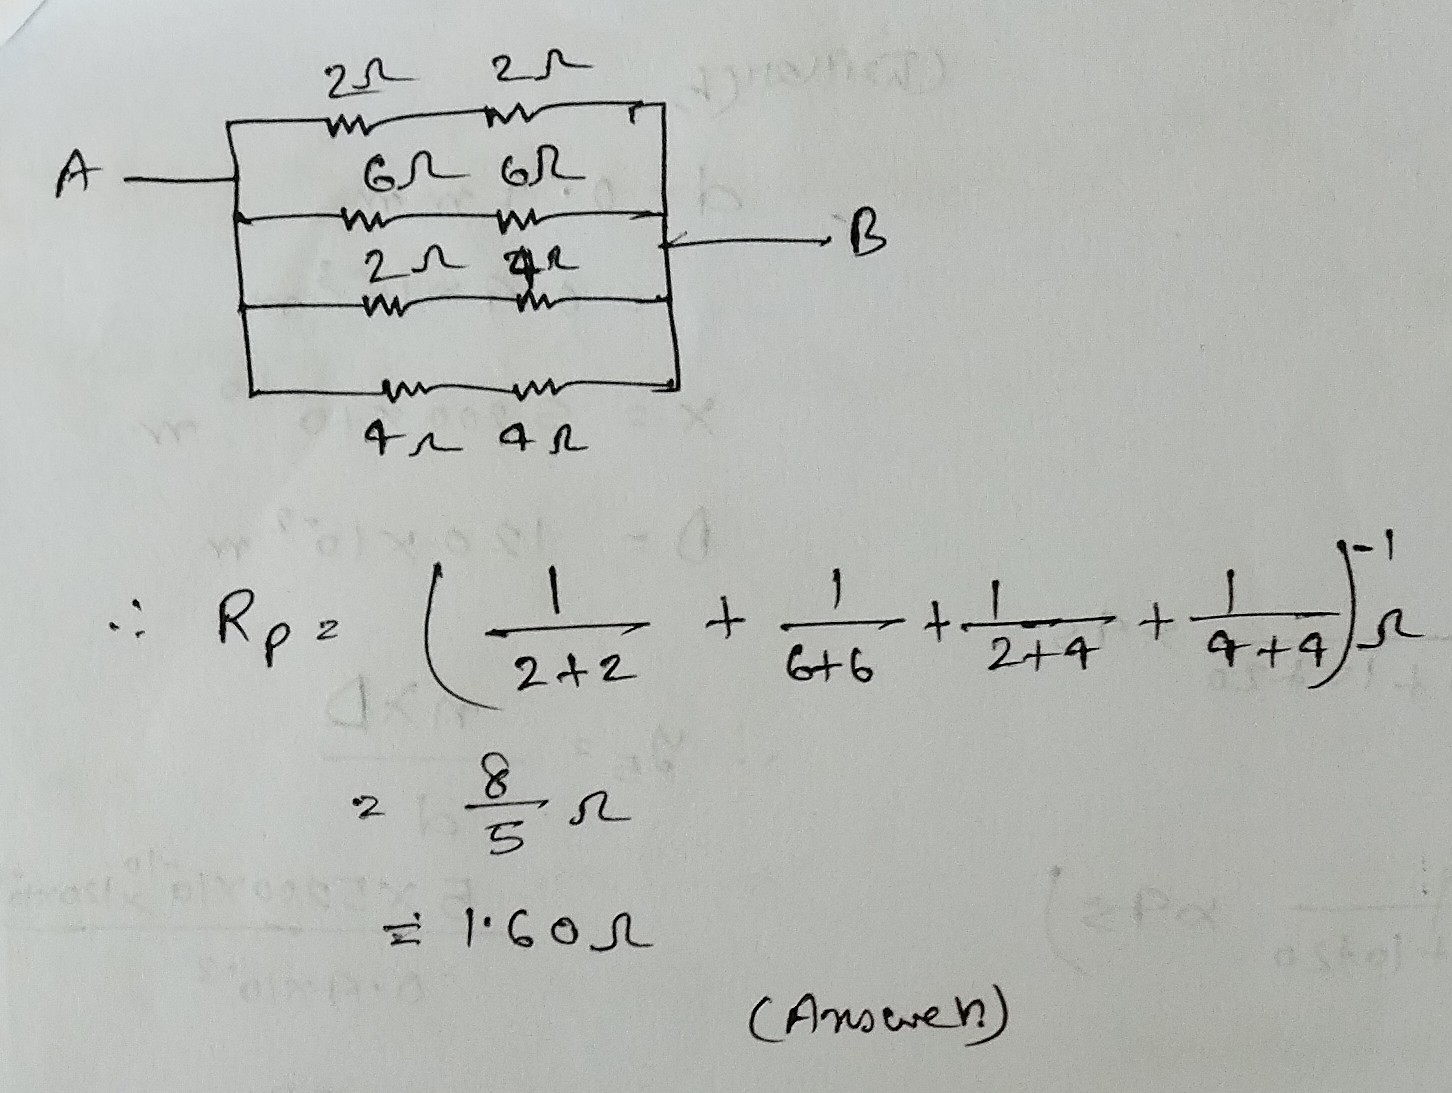 2Ω 2Ω
A
6Ω 6Ω
B
2Ω 4Ω
4Ω 4Ω
∴ Rp = (1/(2+2) + 1/(6+6) + 1/(2+4) + 1/(4+4))^-1 Ω
= 8/5 Ω
= 1.60Ω
(Answer)